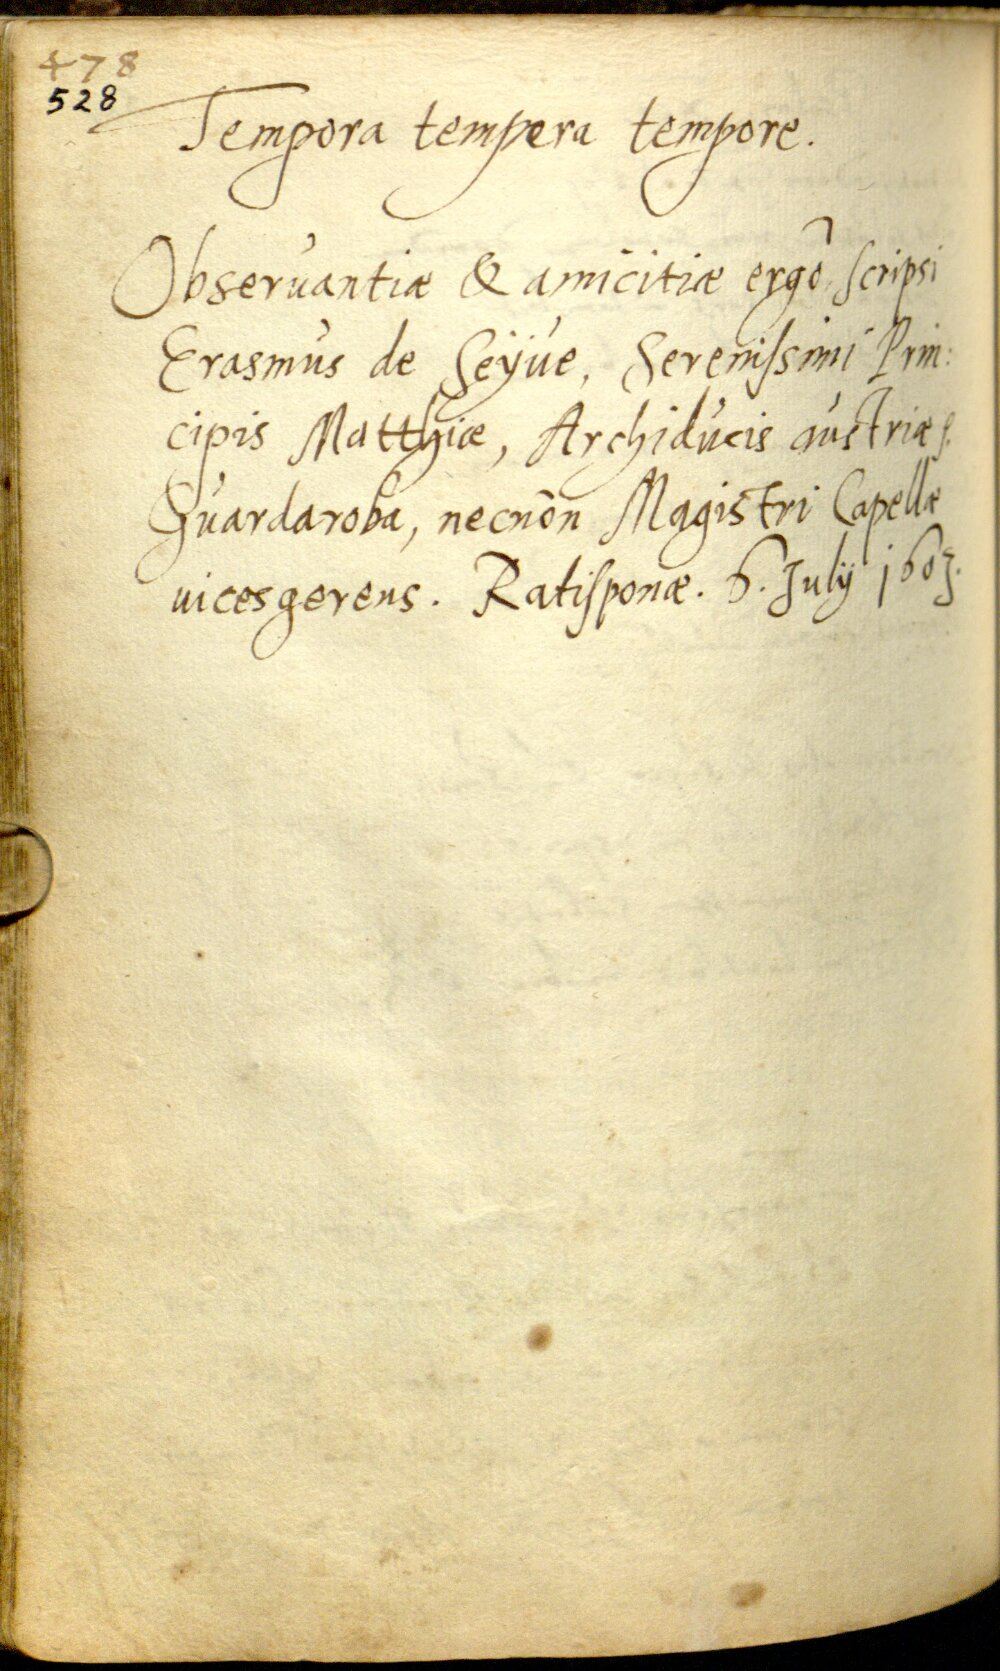 478
528
Tempora tempera tempore.
Obseruantiæ & amicitiæ ergò scripsi
Erasmus de Seÿue, Serenissimi Prin:
cipis Matthiæ, Archiducis austriæ
Guardaroba, necnõn Magistri Capellæ
uicesgerens. Ratisponæ. 6. July 1603.